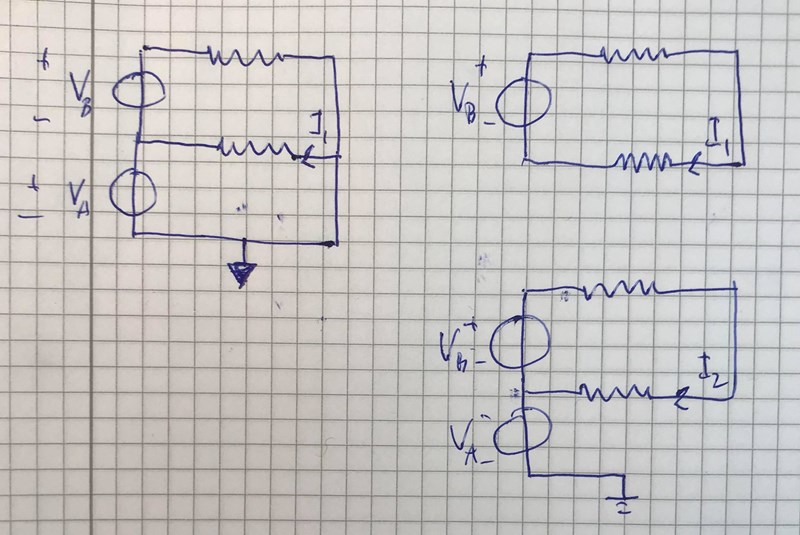 +
V_B
-
I_1
+
V_A
-
+
V_B
-
I_1
+
V_B
-
I_2
-
V_A
-